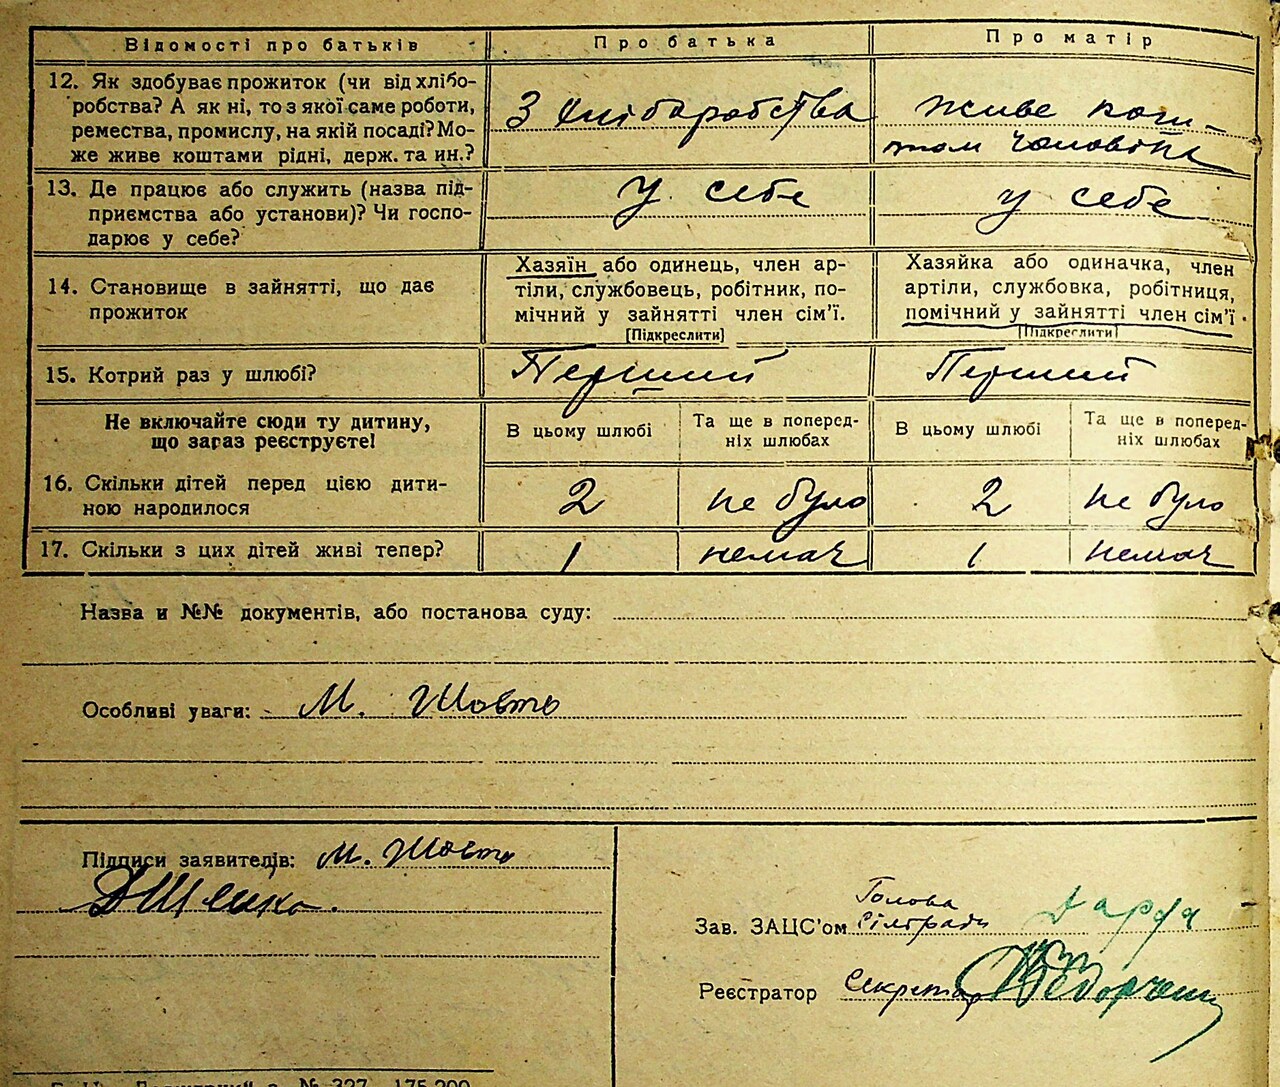 Відомості про батьків
Про батька
Про матір
12. Як здобуває прожиток (чи від хлібо-
робства? А як ні, то з якої саме роботи,
ремества, промислу, на якій посаді? Мо-
же живе коштами рідні, держ. та ин.?
З хліборобства
Живе
чоловіка
13. Де працює або служить (назва під-
приємства або установи)? Чи госпо-
дарює у себе?
У себе
у себе
14. Становище в зайнятті, що дає
прожиток
Хазяїн або одинець, член ар-
тіли, службовець, робітник, по-
мічний у зайнятті член сім'ї.
[Підкреслити]
Хазяйка або одиначка, член
артіли, службовка, робітниця,
помічний у зайнятті член сім'ї.
[Підкреслити]
15. Котрий раз у шлюбі?
Перший
Перший
Не включайте сюди ту дитину,
що зараз реєструєте!
В цьому шлюбі
Та ще в поперед-
ніх шлюбах
В цьому шлюбі
Та ще в поперед-
ніх шлюбах
16. Скільки дітей перед цією дити-
ною народилося
2
не було
2
не було
17. Скільки з цих дітей живі тепер?
1
немає
1
немає
Назва и №№ документів, або постанова суду:
Особливі уваги: М. Шовто
Підписи заявителів: М. Шовто
Голова
Зав. ЗАЦС'ом Сільради
Реєстратор Секретар
№ 327 175.200